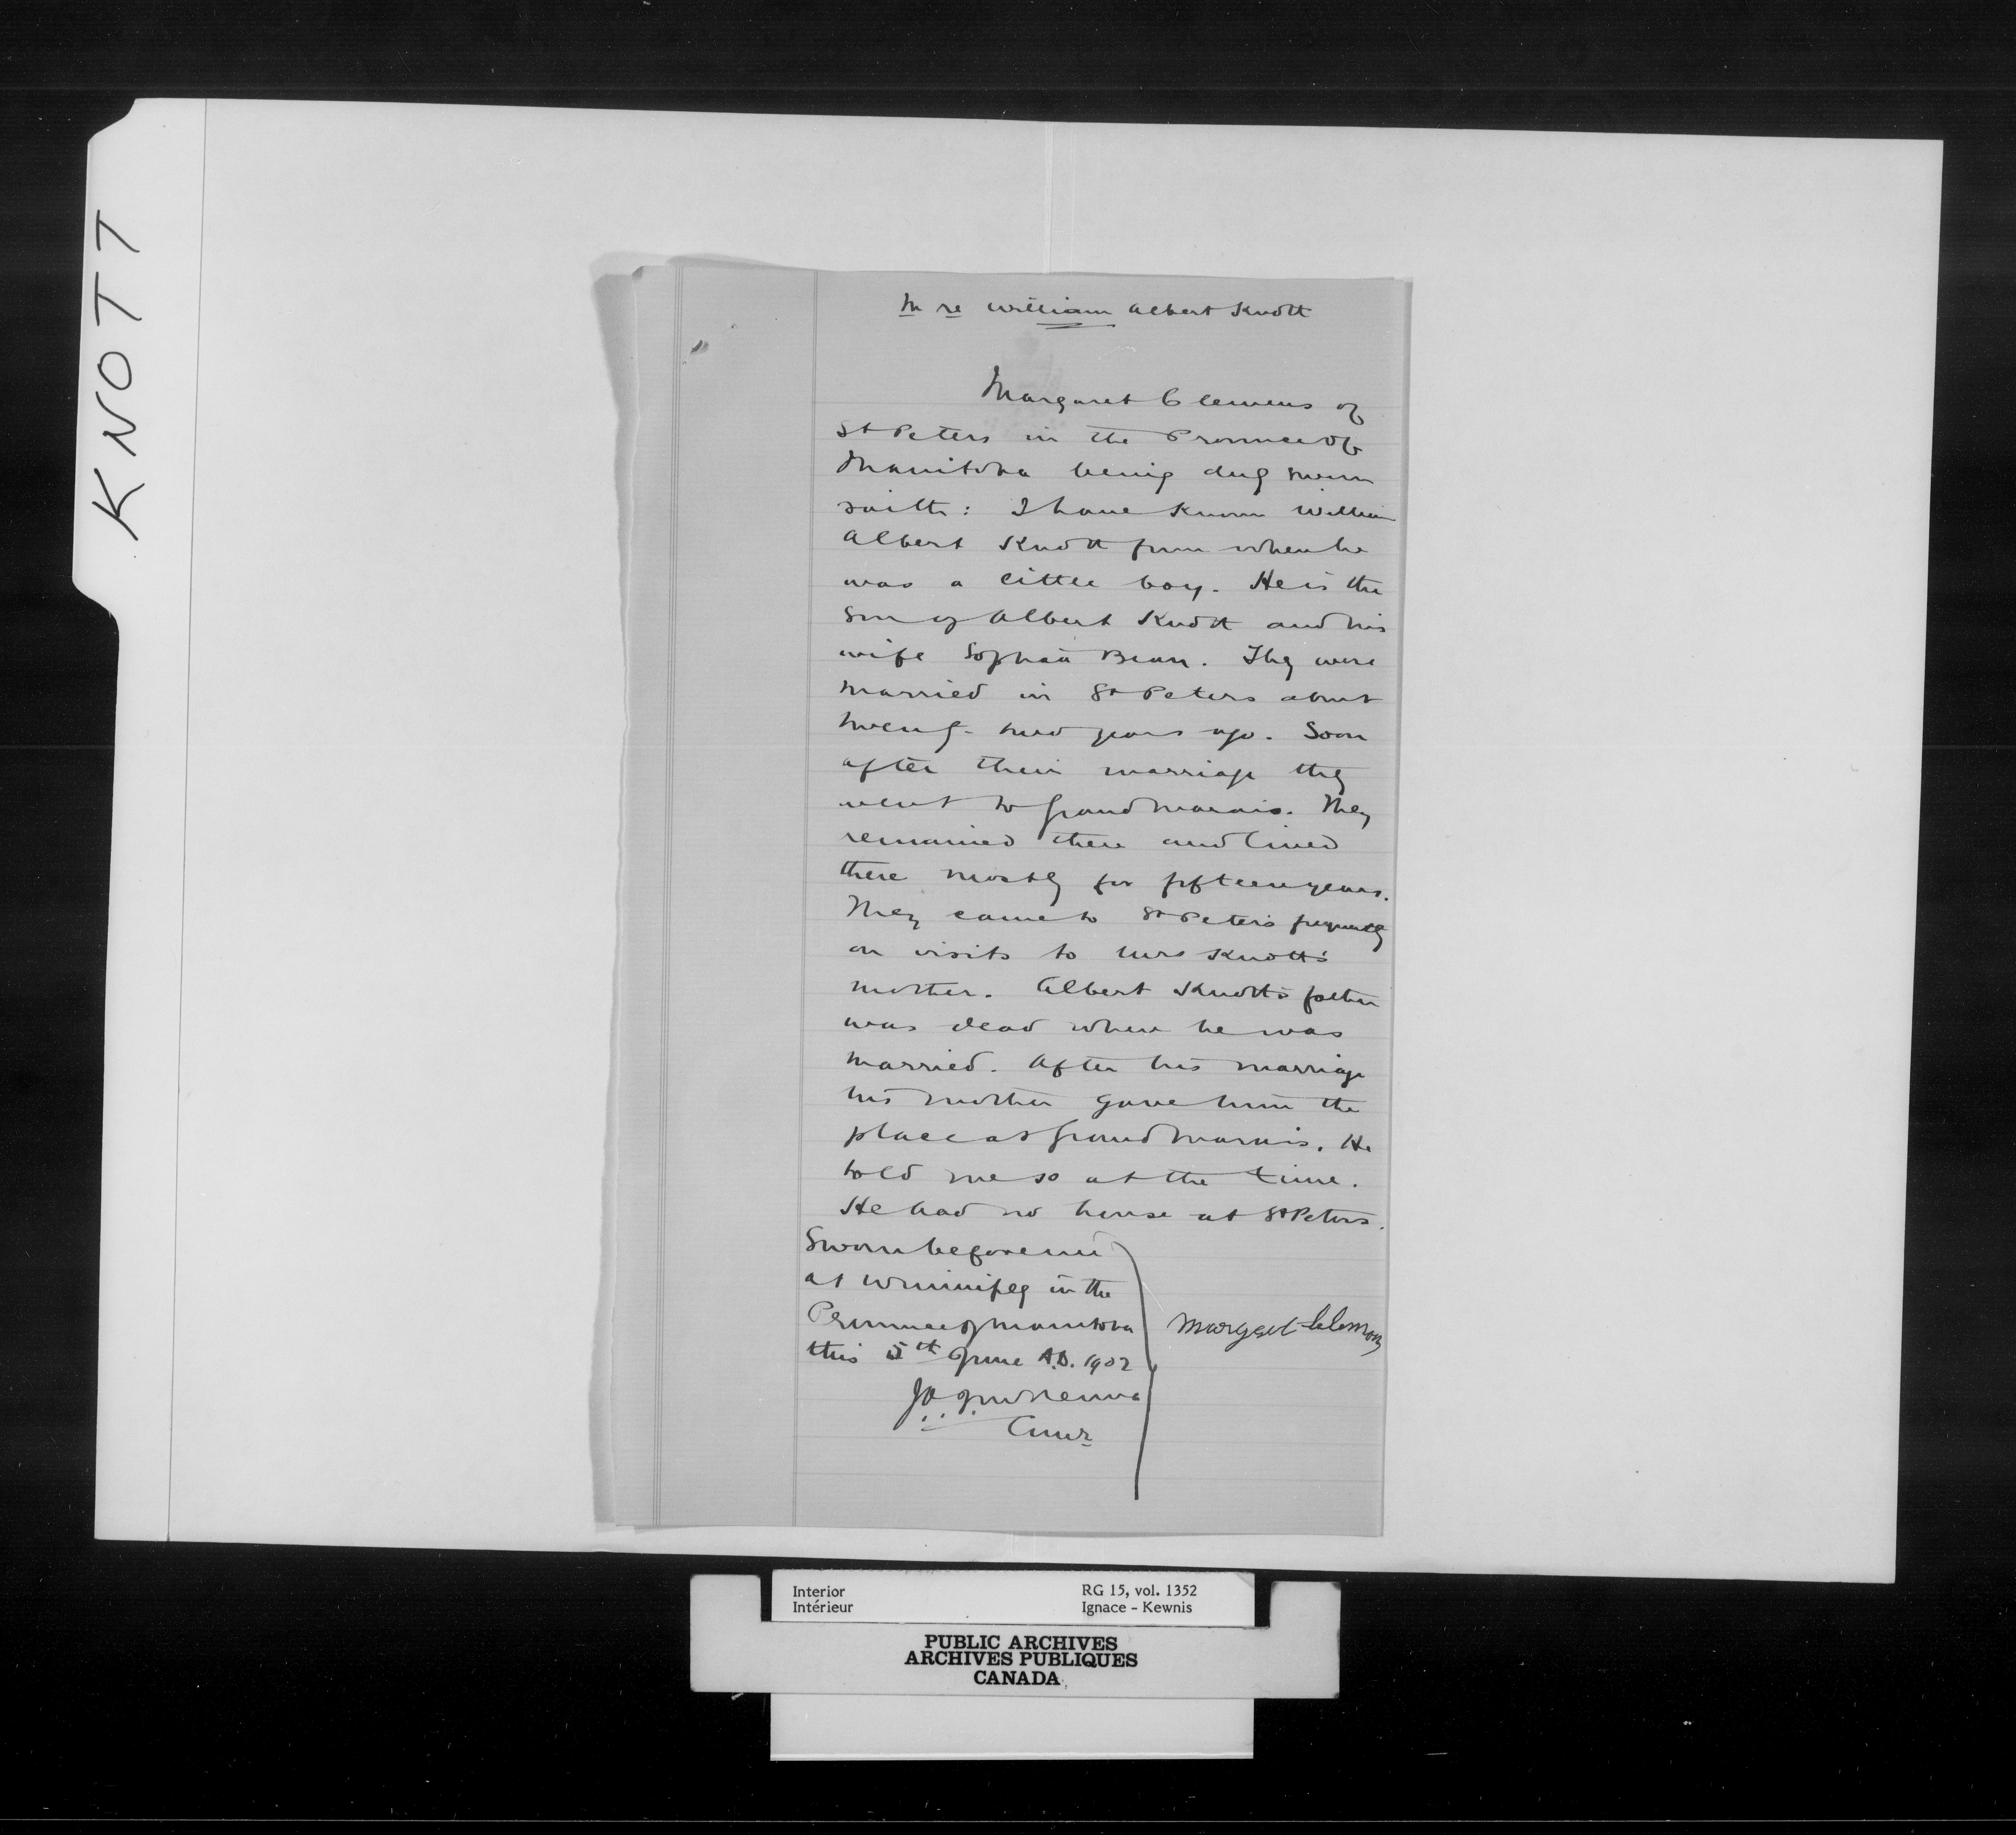 KNOTT
In re William Albert Knott
Margaret Clemens of
St Peters in the Province of
Manitoba being duly sworn
saith: I have known William
Albert Knott from when he
was a little boy. He is the
son of Albert Knott and his
wife Sophia Bear. They were
married in St Peters about
twenty-two years ago. Soon
after their marriage they
went to Grand Marais. They
remained there and lived
there mostly for fifteen years.
They came to St Peter's frequently
on visits to Mrs Knott's
mother. Albert Knott's father
was dead when he was
married. After his marriage
his mother gave him the
place at Grand Marais. He
told me so at the time.
He had no house at St Peters.
Sworn before me
at Winnipeg in the
Province of Manitoba
this 5th June A.D. 1902
Margaet Clemons
J A J McKenna
Cmmr
Interior
Intérieur
RG 15, vol. 1352
Ignace - Kewnis
PUBLIC ARCHIVES
ARCHIVES PUBLIQUES
CANADA